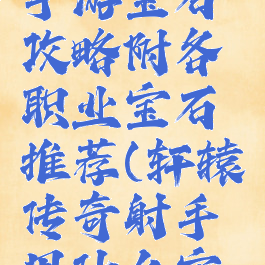 手游宝石
攻略附各
职业宝石
推荐(轩辕
传奇射手